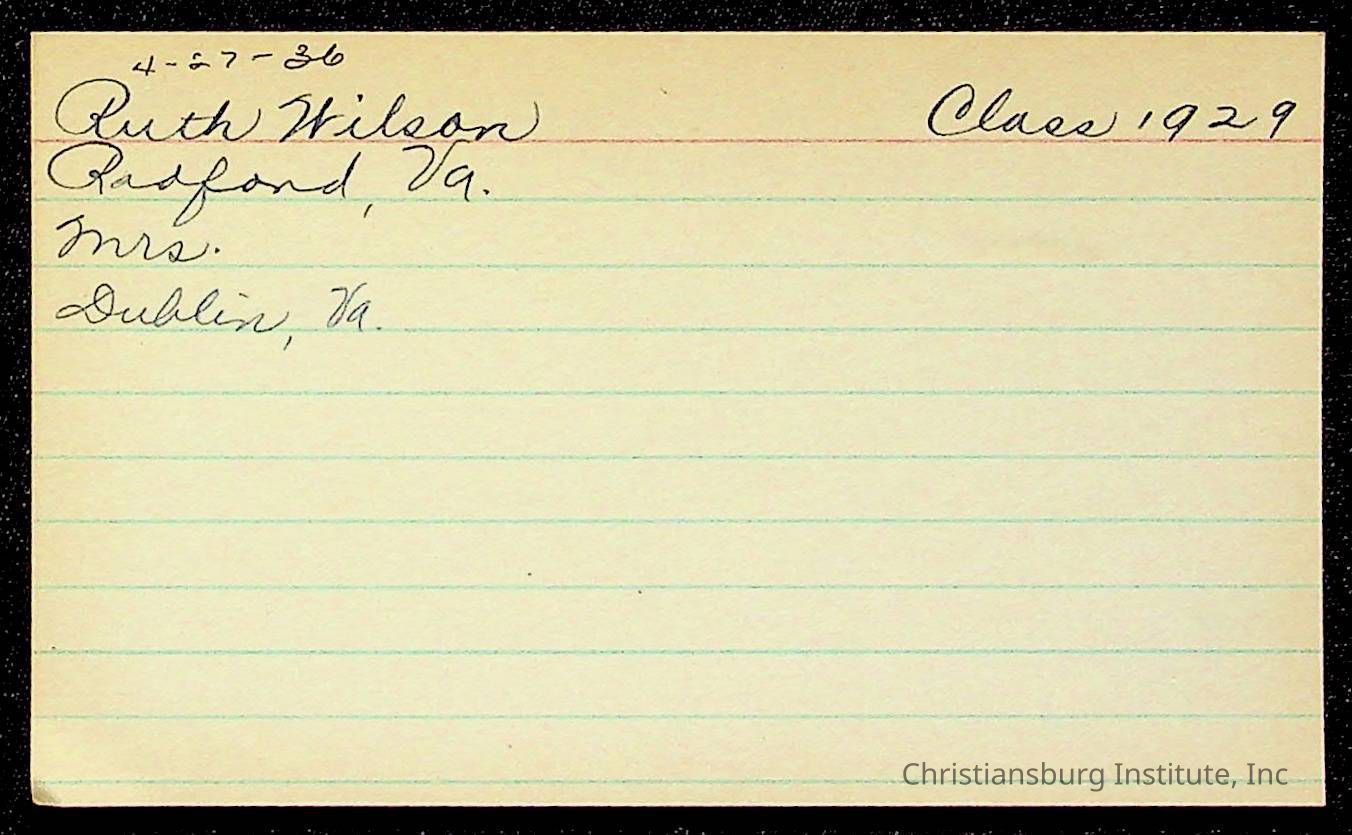 4-27-36
Ruth Wilson Class 1929
Radford, Va.
Mrs.
Dublin, Va.
Christiansburg Institute, Inc